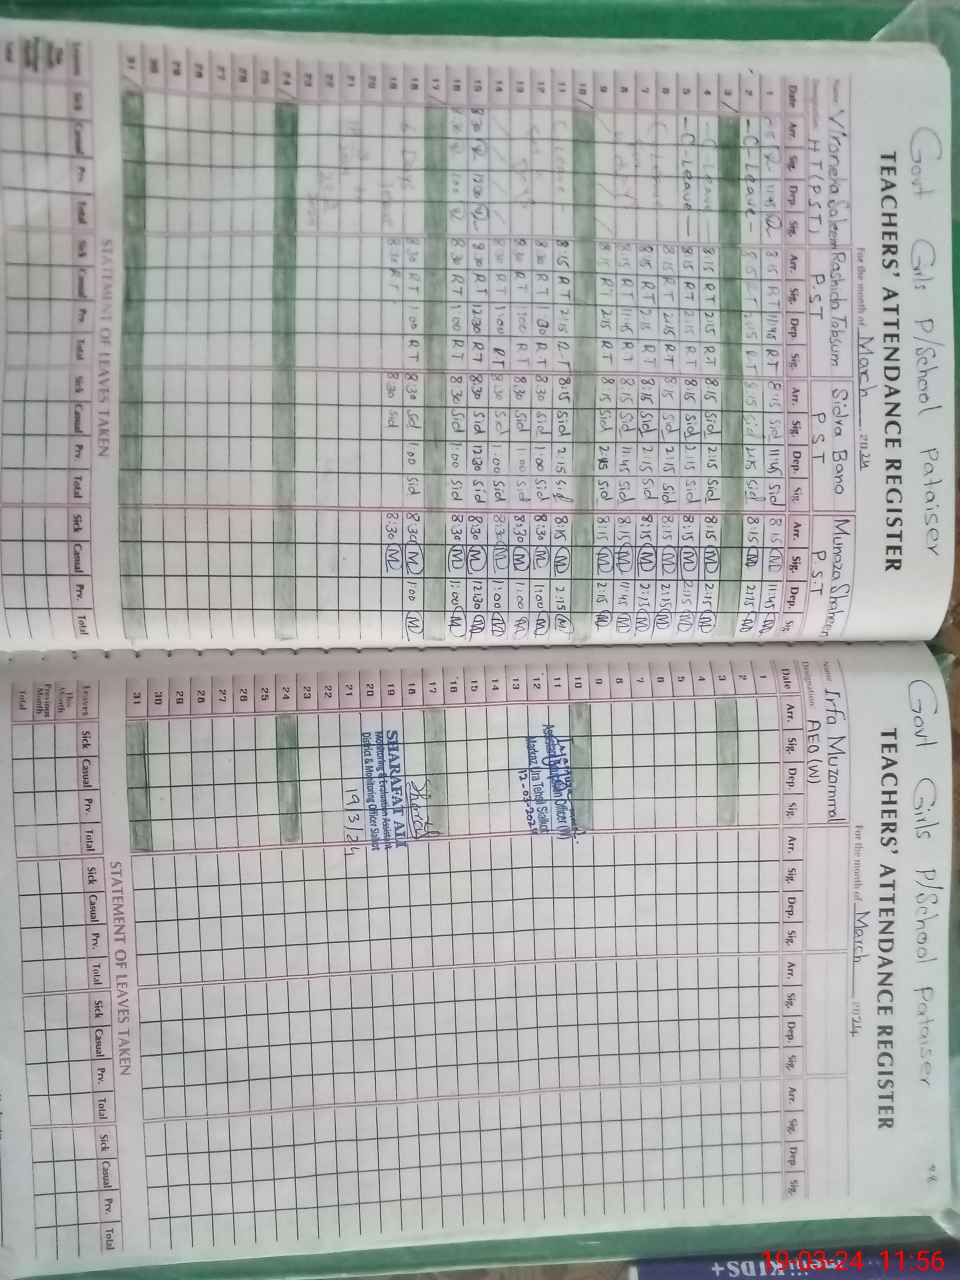 Govt Girls P/School Pataiser
TEACHERS' ATTENDANCE REGISTER
For the month of March 2024
Name Saleem Rashida Tabsum Sidra Bano Munaza Shaheen
Designation HT (PST) P.S.T P S T P.S.T
Date Arr. Sig. Dep. Sig. Arr. Sig. Dep. Sig. Arr. Sig. Dep. Sig. Arr. Sig. Dep. Sig
1 8:15 R T 11:45 R T 8:15 Sid 11:45 Sid 8:15 M 11:45 M
2 -C-Leave- 8:15 R T 2:15 R T 8:15 Sid 2:15 Sid 8:15 M 2:15 M
3
4 -C-Leave- 8:15 R T 2:15 R T 8:15 Sid 2:15 Sid 8:15 M 2:15 M
5 -C-Leave- 8:15 R T 2:15 R T 8:15 Sid 2:15 Sid 8:15 M 2:15 M
6 8:15 R T 2:15 R T 8:15 Sid 2:15 Sid 8:15 M 2:15 M
7 8:15 R T 2:15 R T 8:15 Sid 2:15 Sid 8:15 M 2:15 M
8 8:15 R T 11:45 R T 8:15 Sid 11:45 Sid 8:15 M 11:45 M
9 8:15 R T 2:15 R T 8:15 Sid 2:15 Sid 8:15 M 2:15 M
10
11 8:15 R T 2:15 R T 8:15 Sid 2:15 Sid 8:15 M 2:15 M
12 8:30 R T 1:30 R T 8:30 Sid 1:00 Sid 8:30 M 1:00 M
13 8:30 R T 1:00 R T 8:30 Sid 1:00 Sid 8:30 M 1:00 M
14 8:30 R T 1:00 R T 8:30 Sid 1:00 Sid 8:30 M 1:00 M
15 8:30 12:30 8:30 R T 12:30 R T 8:30 Sid 12:30 Sid 8:30 M 12:30 M
16 8:30 1:00 8:30 R T 1:00 R T 8:30 Sid 1:00 Sid 8:30 M 1:00 M
17
18 8:30 R T 1:00 R T 8:30 Sid 1:00 Sid 8:30 M 1:00 M
19 8:30 R T 8:30 Sid 8:30 M
20
21
22
23
24
25
26
27
28
29
30
31
STATEMENT OF LEAVES TAKEN
Leaves Sick Casual Prv. Total Sick Casual Prv. Total Sick Casual Prv. Total Sick Casual Prv. Total
This Month
Previous Month
Total
Govt Girls P/School Pataiser
98
TEACHERS' ATTENDANCE REGISTER
For the month of March 2024
Name Irfa Muzammal
Designation AEO (W)
Date Arr. Sig. Dep. Sig. Arr. Sig. Dep. Sig. Arr. Sig. Dep. Sig. Arr. Sig. Dep Sig.
1
2
3
4
5
6
7
8
9
10
11 Officer (W)
12 Markaz Ura Tehsil Sialkot
12-03-2024
13
14
15
16
17
18
19 SHARAFAT ALI
Monitoring & Evaluation Assistant
20 District & Monitoring Officer Sialkot
21 19/3/24
22
23
24
25
26
27
28
29
30
31
STATEMENT OF LEAVES TAKEN
Leaves Sick Casual Prv. Total Sick Casual Prv. Total Sick Casual Prv. Total Sick Casual Prv. Total
This Month
Previous Month
Total
KIDS+
19-03-24 11:56